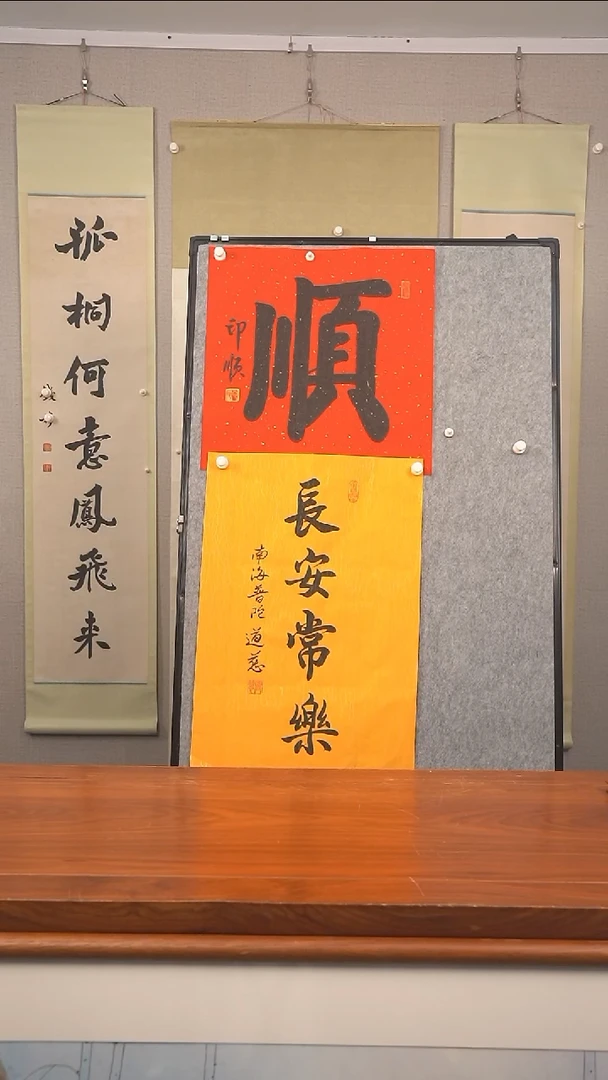 順
印順
長安常樂
南海普陀道慈
孤桐何意鳳飛来